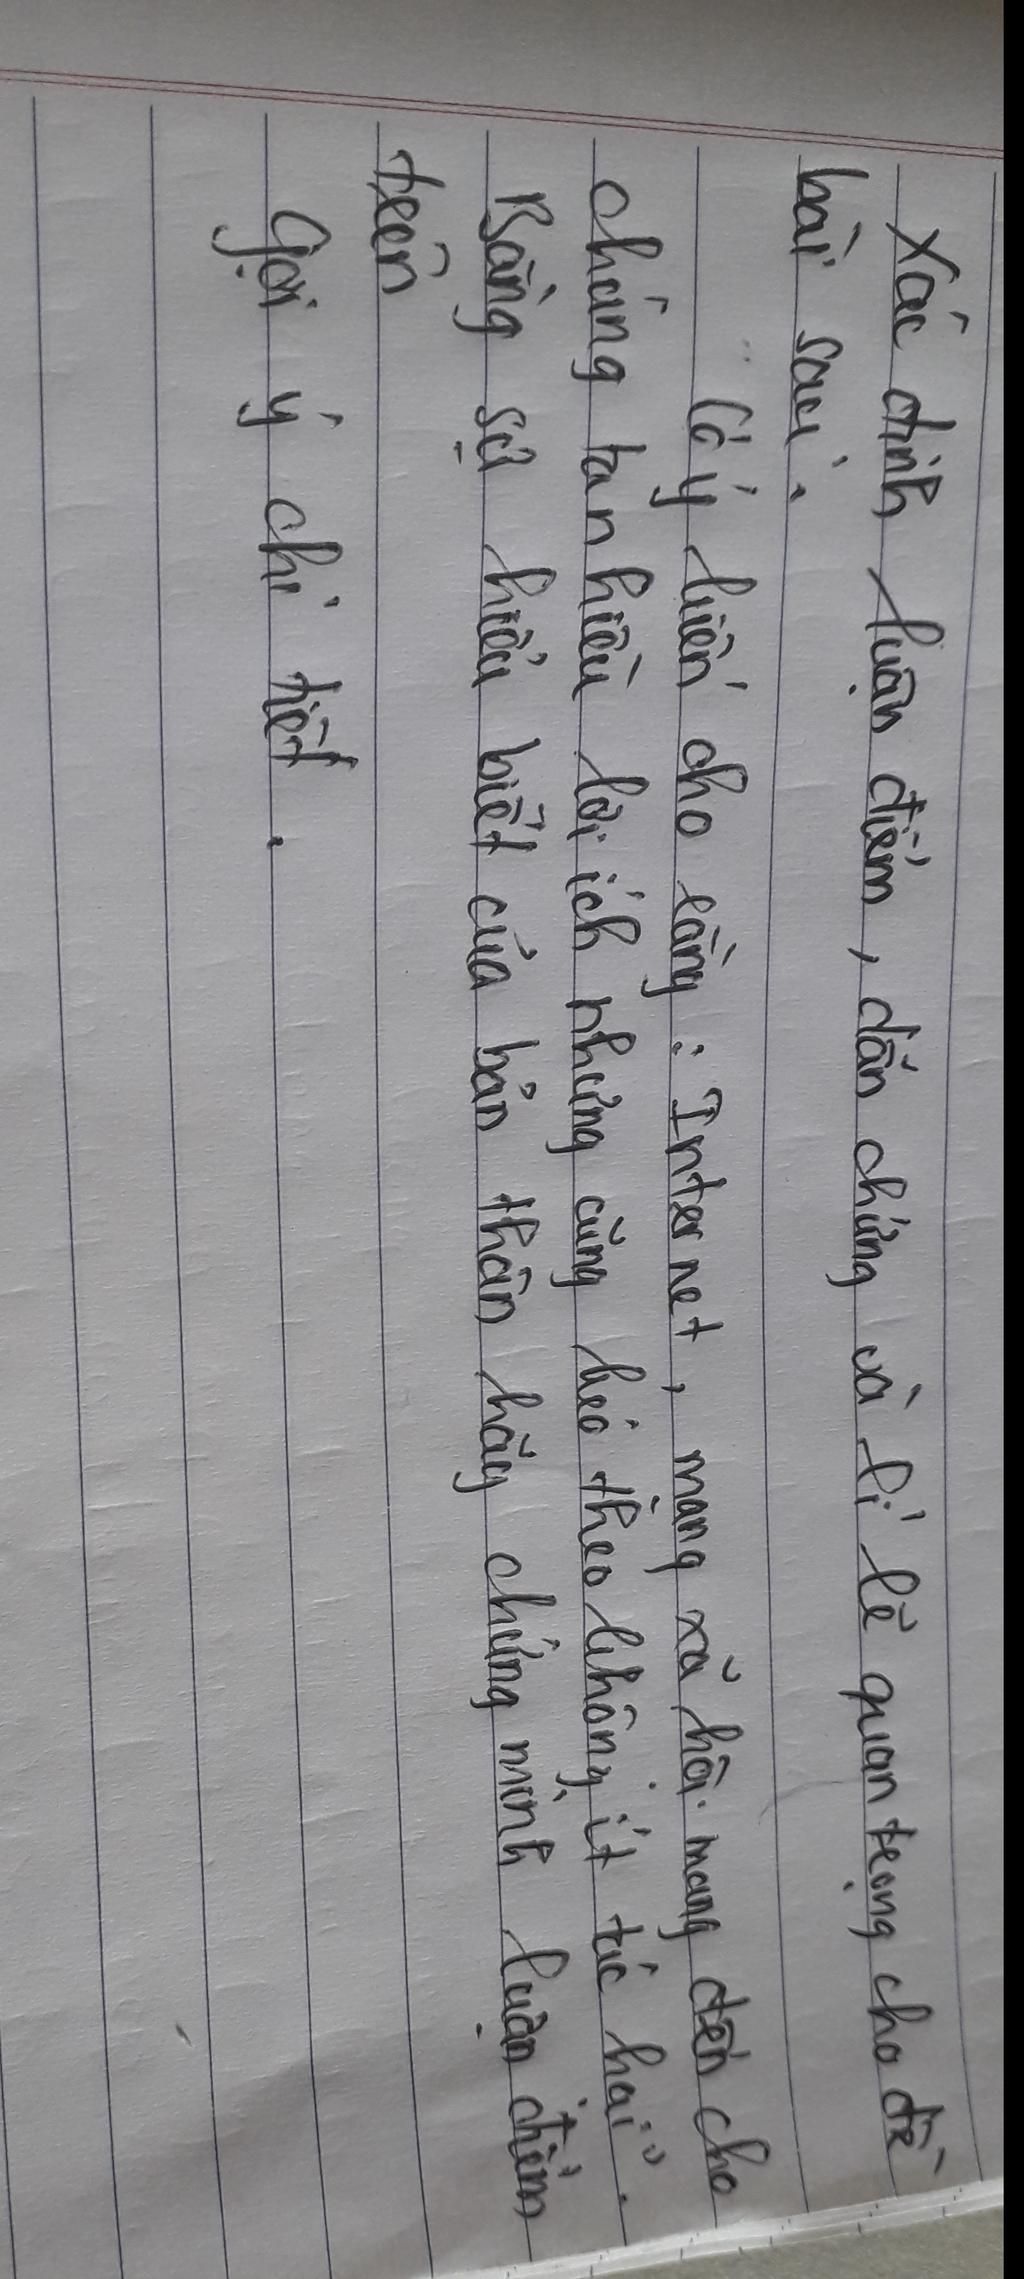 Xác định luận điểm, dẫn chứng và lí lẽ quan trọng cho đề
bài sau.
"Có ý kiến cho rằng: Internet, mạng xã hội mang đến cho
chúng ta nhiều lợi ích nhưng cũng kéo theo không ít tác hại".
Bằng sự hiểu biết của bản thân hãy chứng minh luận điểm
trên
Gợi ý chi tiết.